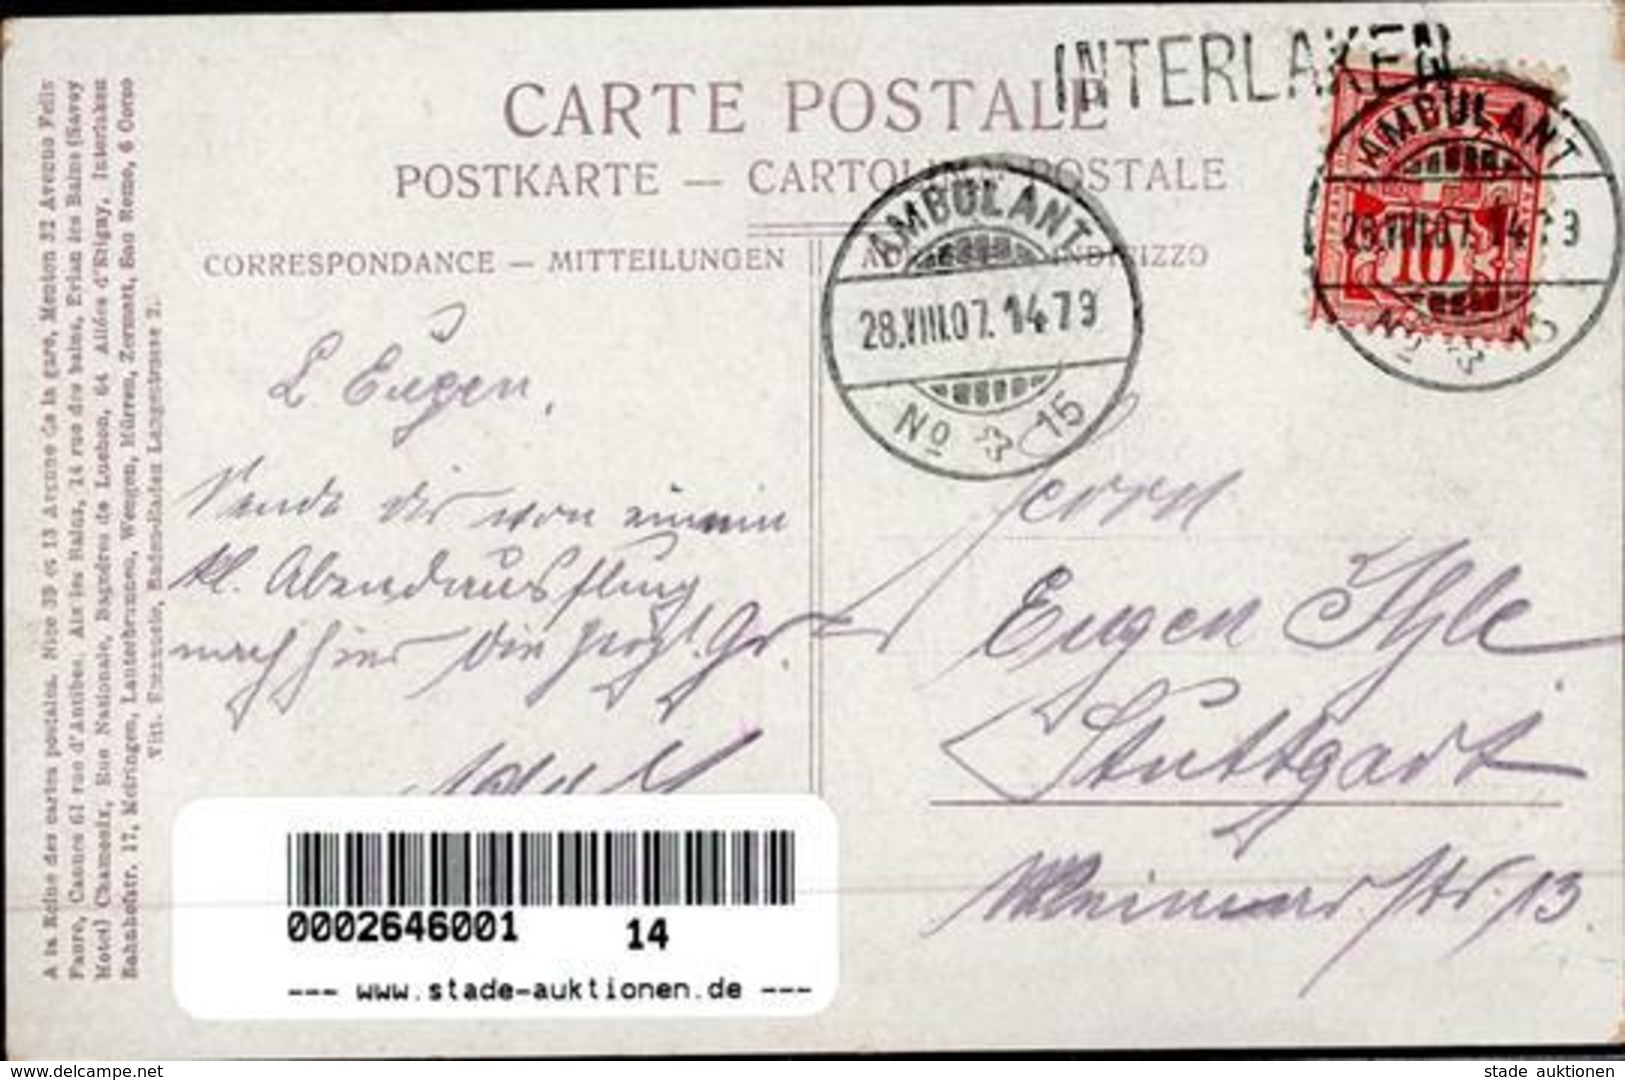 INTERLAKEN
CARTE POSTALE
POSTKARTE — CARTOLINA POSTALE
CORRESPONDANCE — MITTEILUNGEN
AMBULANT
28.VIII.07. 1479
No 15
AMBULANT
28.VIII.07. 1479
No 15
10
A la Reine des cartes postales. Nice 39 et 13 Avenue de la gare, Menton 32 Avenue Felix
Faure, Cannes 61 rue d'Antibes. Aix les Bains, 14 rue des bains, Evian les Bains (Savoy
Hotel) Chamonix, Rue Nationale, Bagnères de Luchon, 64 Allées d'Etigny, Interlaken
Bahnhofstr. 17, Meiringen, Lauterbrunnen, Wengen, Mürren, Zermatt, San Remo, 6 Corso
Vitt. Emanuele, Langstrasse 2.
L Eugen,
Sende dir von einem
kl. Abendausflug
nach hier die herzl. Gr.
Adolf
Herrn
Eugen Ihle
Stuttgart
Weimarstr. 13.
0002646001 14
--- www.stade-auktionen.de ---
www.delcampe.net
stade auktionen